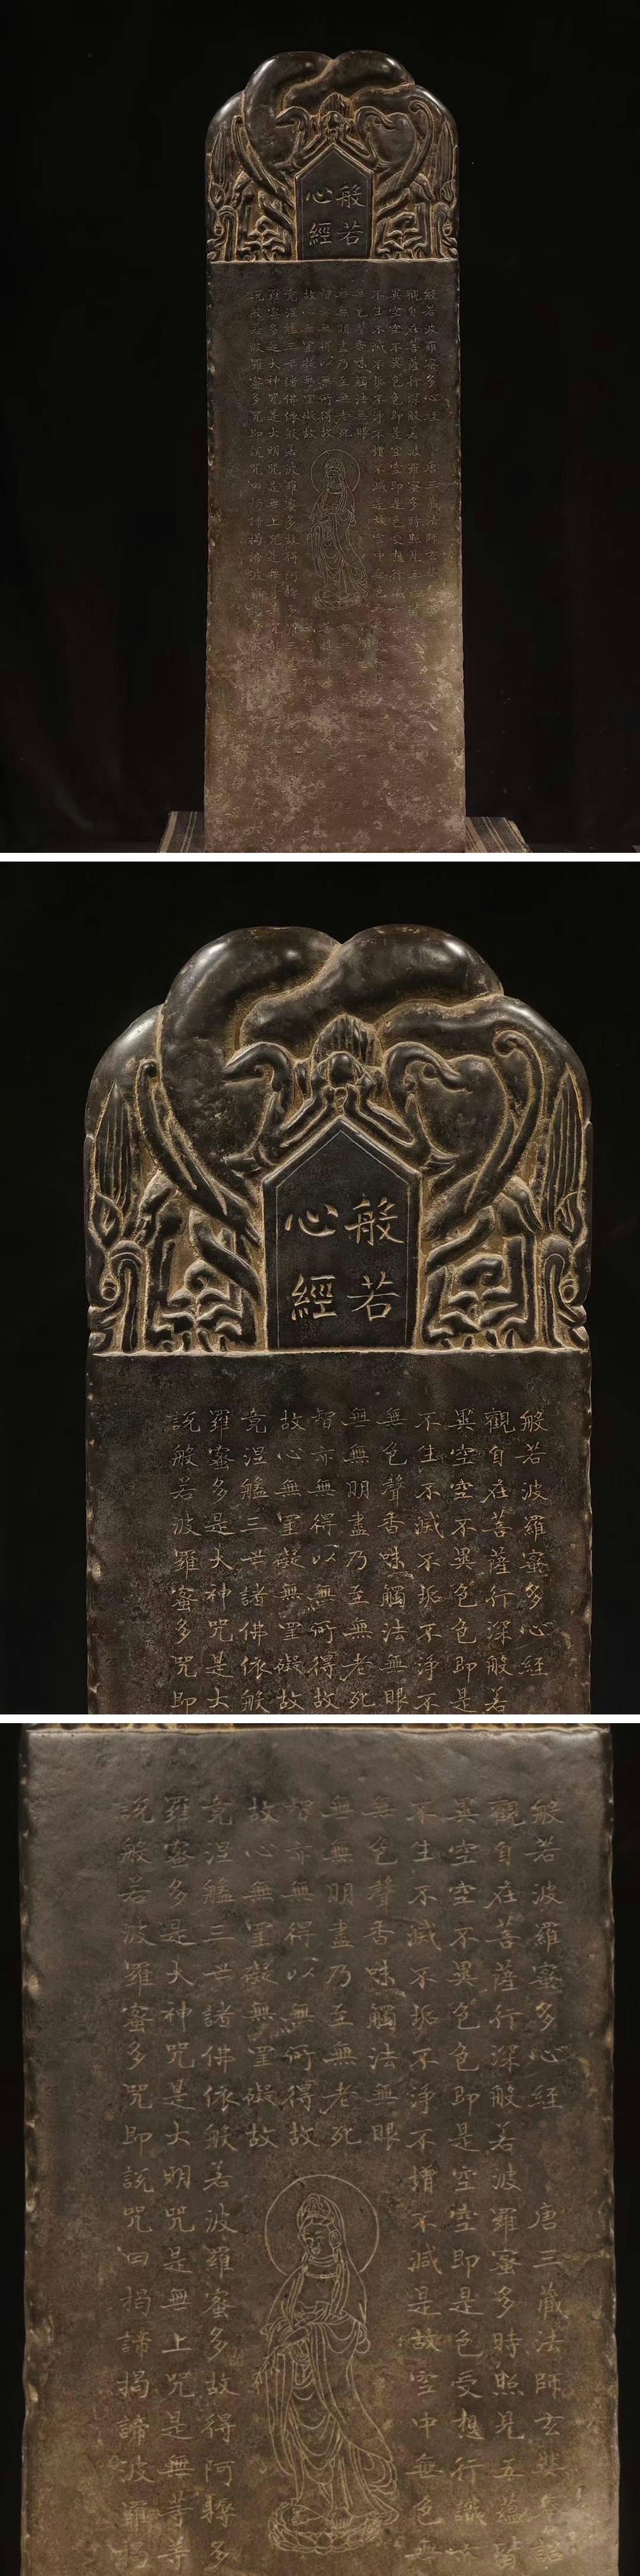 般若
心經
般若波羅蜜多心經 唐三藏法師玄
觀自在菩薩行深般若波羅蜜多時照見五
異空空不異色色即是空空即是色受想行識
不生不滅不垢不淨不增不減是故空中無色
無色聲香味觸法無眼
無無明盡乃至無老死
智亦無得以無所得故
故心無罣礙無罣礙故
竟涅槃三世諸佛依般若波羅蜜多故得阿耨多
羅蜜多是大神咒是大明咒是無上咒是無等
說般若波羅蜜多咒即說咒曰揭諦揭諦波羅
般若
心經
般若波羅蜜多心經
觀自在菩薩行深般若
異空空不異色色即是
不生不滅不垢不淨不
無色聲香味觸法無眼
無無明盡乃至無老死
智亦無得以無所得故
故心無罣礙無罣礙故
竟涅槃三世諸佛依般
羅蜜多是大神咒是大
說般若波羅蜜多咒即
般若波羅蜜多心經 唐三藏法師玄奘奉詔
觀自在菩薩行深般若波羅蜜多時照見五蘊皆
異空空不異色色即是空空即是色受想行識亦
不生不滅不垢不淨不增不減是故空中無色無
無色聲香味觸法無眼
無無明盡乃至無老死
智亦無得以無所得故
故心無罣礙無罣礙故
竟涅槃三世諸佛依般若波羅蜜多故得阿耨多
羅蜜多是大神咒是大明咒是無上咒是無等等
說般若波羅蜜多咒即說咒曰揭諦揭諦波羅揭